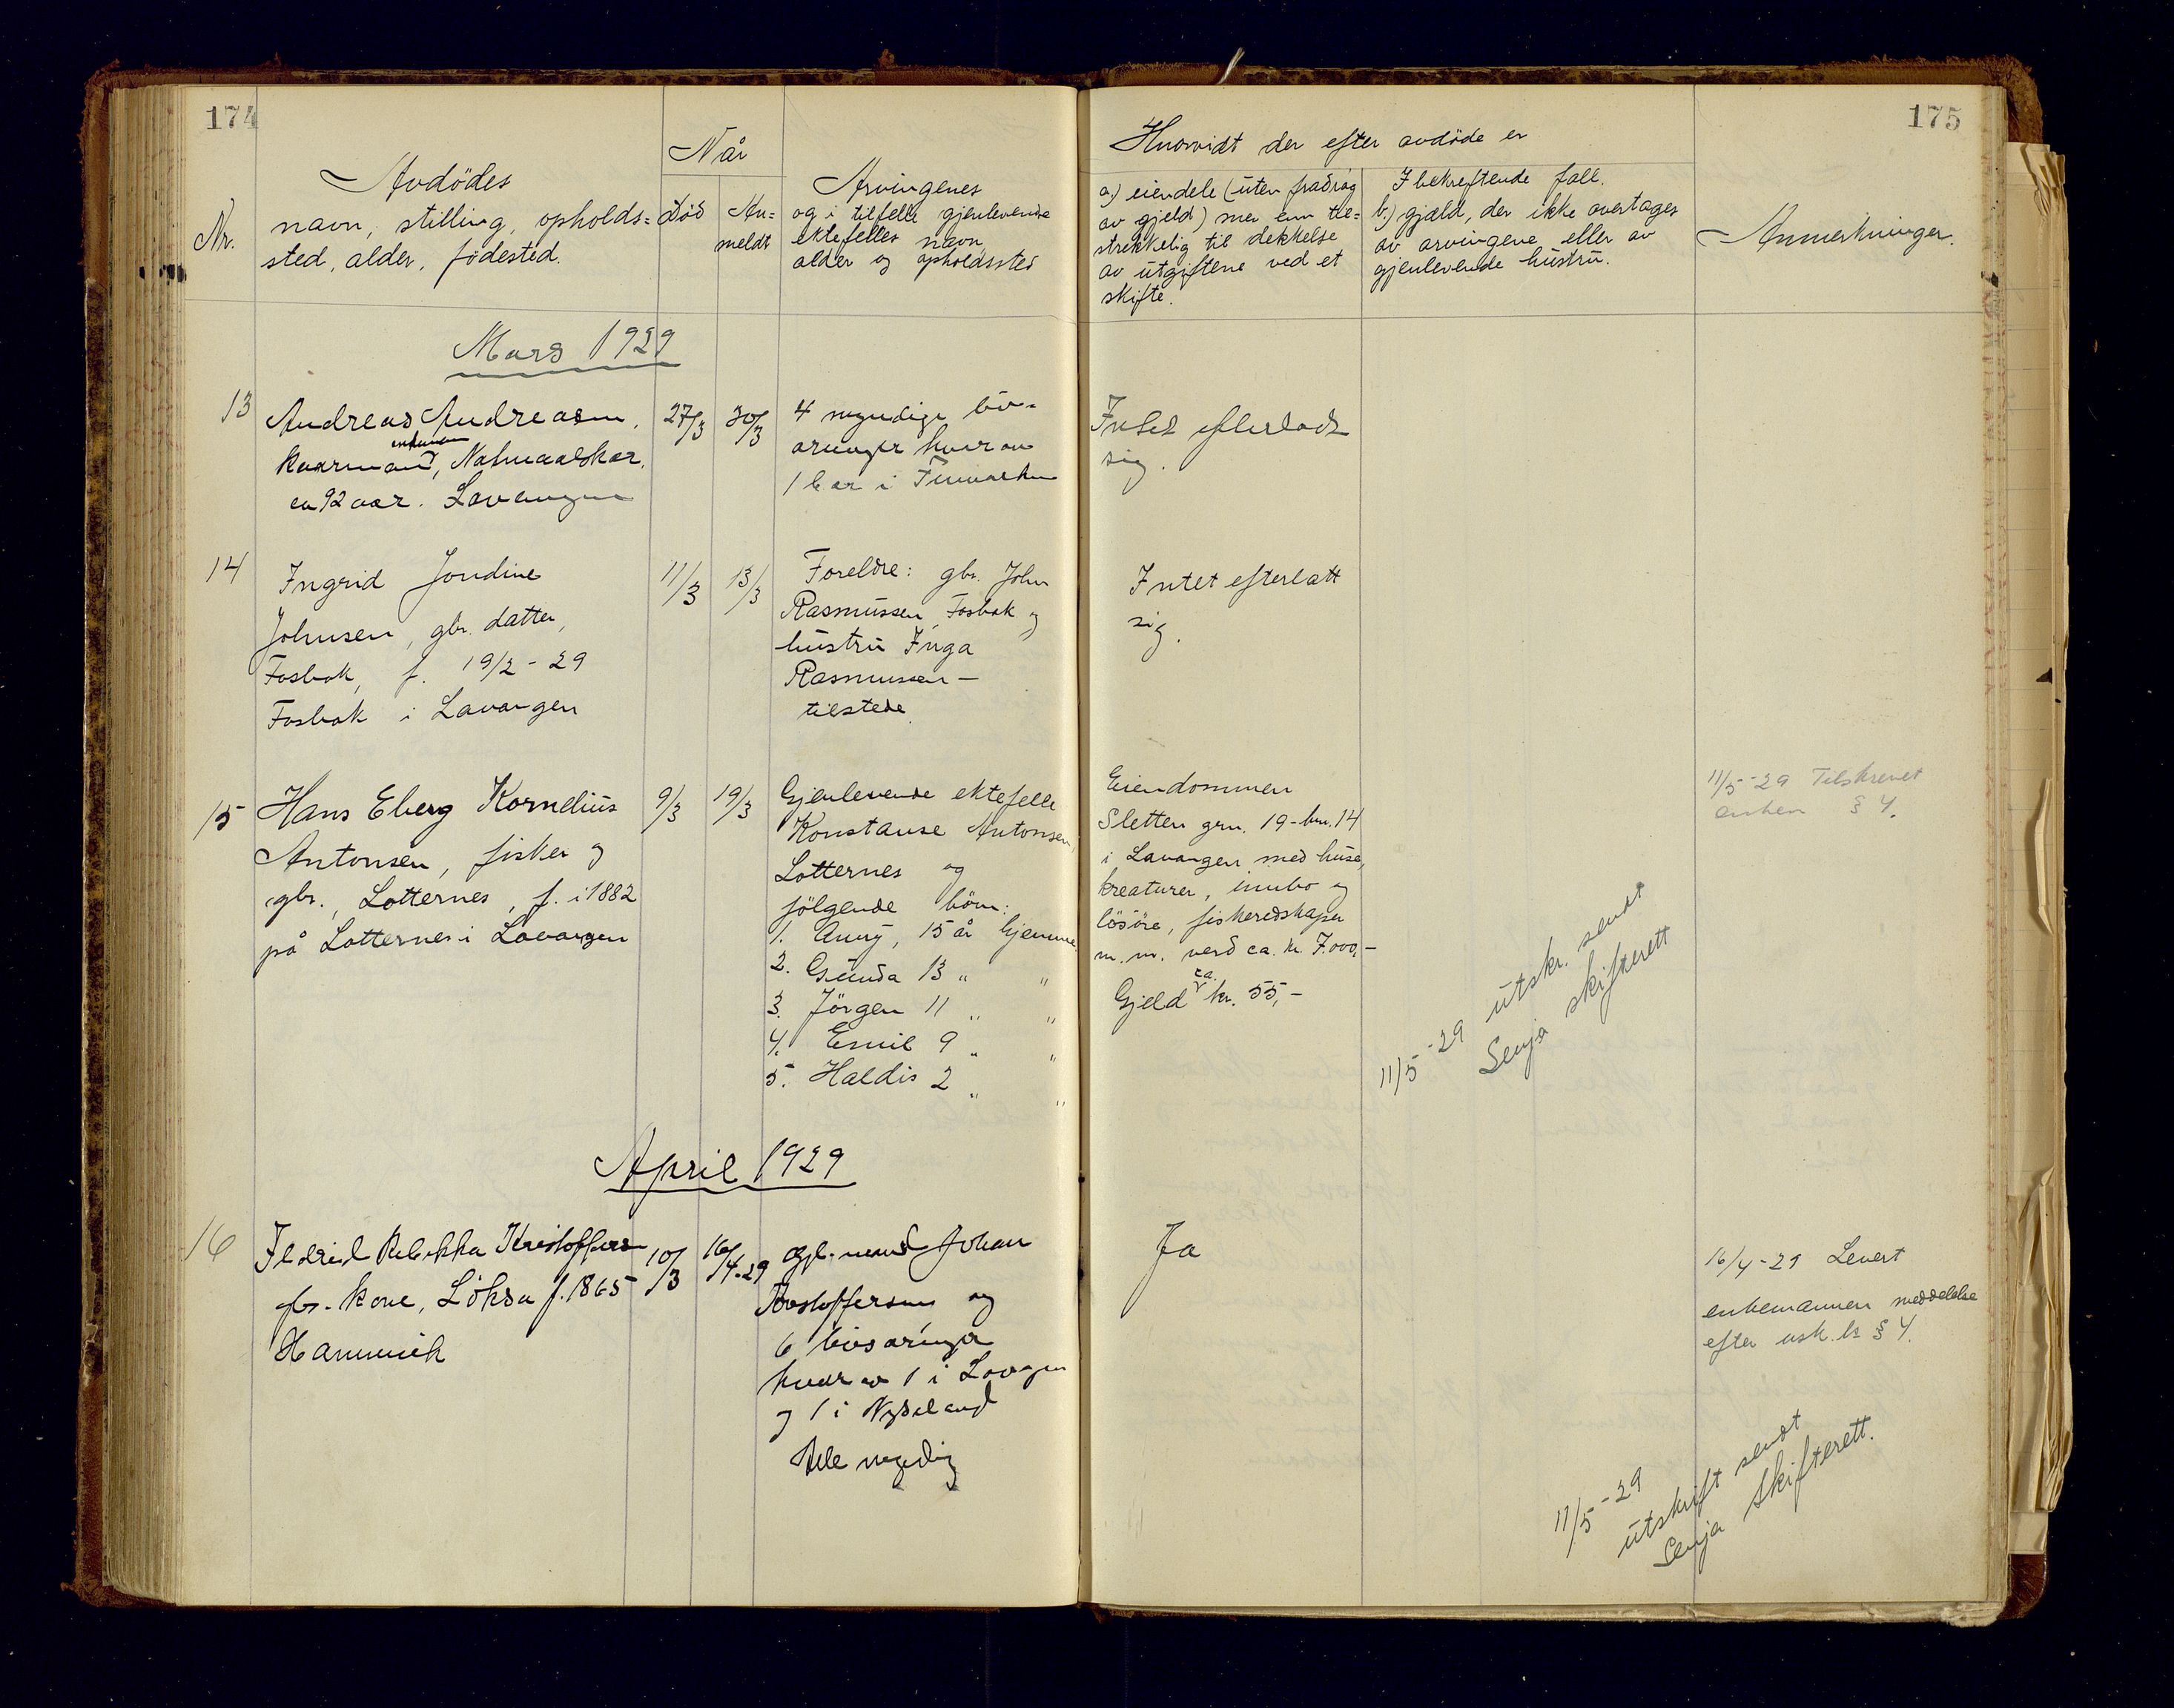 174
175
Når
Hvorvidt der efter avdöde er
Nr.
Avdödes
navn, stilling, opholds=
sted, alder, födested.
Död
An=
meldt
Arvingenes
og i tilfelle gjenlevende
ektefelles navn,
alder og opholdssted
a.) eiendele (uten fradrag
av gjeld) mer enn til=
strekkelig til dekkelse
av utgiftene ved et
skifte.
I bekreftende fall.
b.) gjæld, der ikke overtages
av arvingene eller av
gjenlevende hustru.
Anmerkninger.
Mars 1929
13
Andreas Andreasen,
enkemann
en 92 aar. Lavangen
27/3
30/3
4 myndige livs-
arvinger hvorav
1 bor i Finmarken
Intet efterladt
sig.
14
Ingrid Jondine
Johnsen, gbr. datter,
Fosbak, f. 19/2-29
Fosbak i Lavangen
11/3
13/3
Foreldre: gbr. John
Rasmussen, Fosbak og
hustru Inga
Rasmussen -
tilstede.
Intet efterlatt
sig.
15
Hans Eberg Kornelius
Antonsen, fisker og
gbr., Lotternes, f. i 1882
på Lotternes i Lavangen
9/3
19/3
Gjenlevende ektefelle
Konstanse Antonsen,
Lotternes og
fölgende börn:
1. Anny, 15 år hjemme
2. Gunda 13 " "
3. Jörgen 11 " "
4. Emil 9 " "
5. Haldis 2 " "
Eiendommen
Sletten grn. 19 - brn. 14
i Lavangen med huse,
kreaturer, innbo og
lösöre, fiskeredskaper
m. m. verd ca. kr. 7.000,-
Gjeld ca. kr. 55,-
11/5-29 utskr. sendt
Senja skifterett
11/5-29 Tilskrevet
enken § 4.
April 1929
16
Rebekka Kristoffersen
gbr. kone, Löksa f. 1865
Hamnvik
10/3
16/4-29
Gjl. mand Johan
Kristoffersen og
6 livsarvinger
hvorav 1 i Lavangen
og 1 i
Alle myndig
Ja
16/4-29 Levert
enkemannen meddelelse
efter usk. lr § 4.
11/5-29
utskrift sendt
Senja Skifterett.